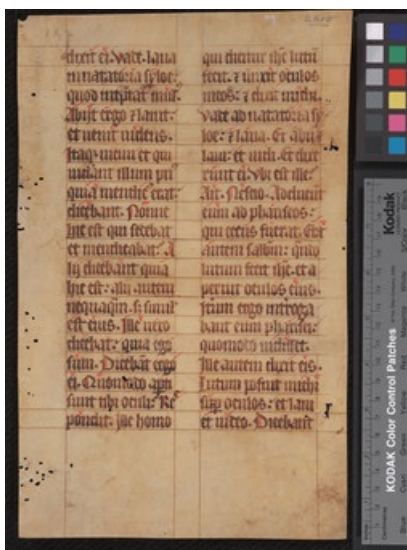 dixit ei. Vade. laua
in natatoria syloe:
quod interpretatur miss'.
Abijt ergo et lauit.
et uenit uidens.
Itaque uicini et qui
uiderant illum pri'
quia mendicus erat:
dicebant. Nonne
hic est qui sedebat
et mendicabat: A
lij dicebant quia
hic est: alij autem
nequaquam. sed similis
est eius. Ille uero
dicebat: quia ego
sum. Dicebant ergo
ei. Quomodo aperti
sunt tibi oculi: Re
spondit. Ille homo
qui dicitur ihc lutum
fecit. et unxit oculos
meos: et dixit michi.
Vade ad natatoria sy
loe: et laua. Et abij et
laui: et uidi. Et dixe
runt ei. Vbi est ille:
Ait. Nescio. Adducunt
eum ad phariseos:
qui cecus fuerat. Erat
autem sabbatum: quando
lutum fecit ihc. et a
peruit oculos eius.
Iterum ergo interroga
bant eum pharisei:
quomodo uidisset.
Ille autem dixit eis.
Lutum posuit michi
super oculos: et laui
et uideo. Dicebant
Kodak
KODAK Color Control Patches